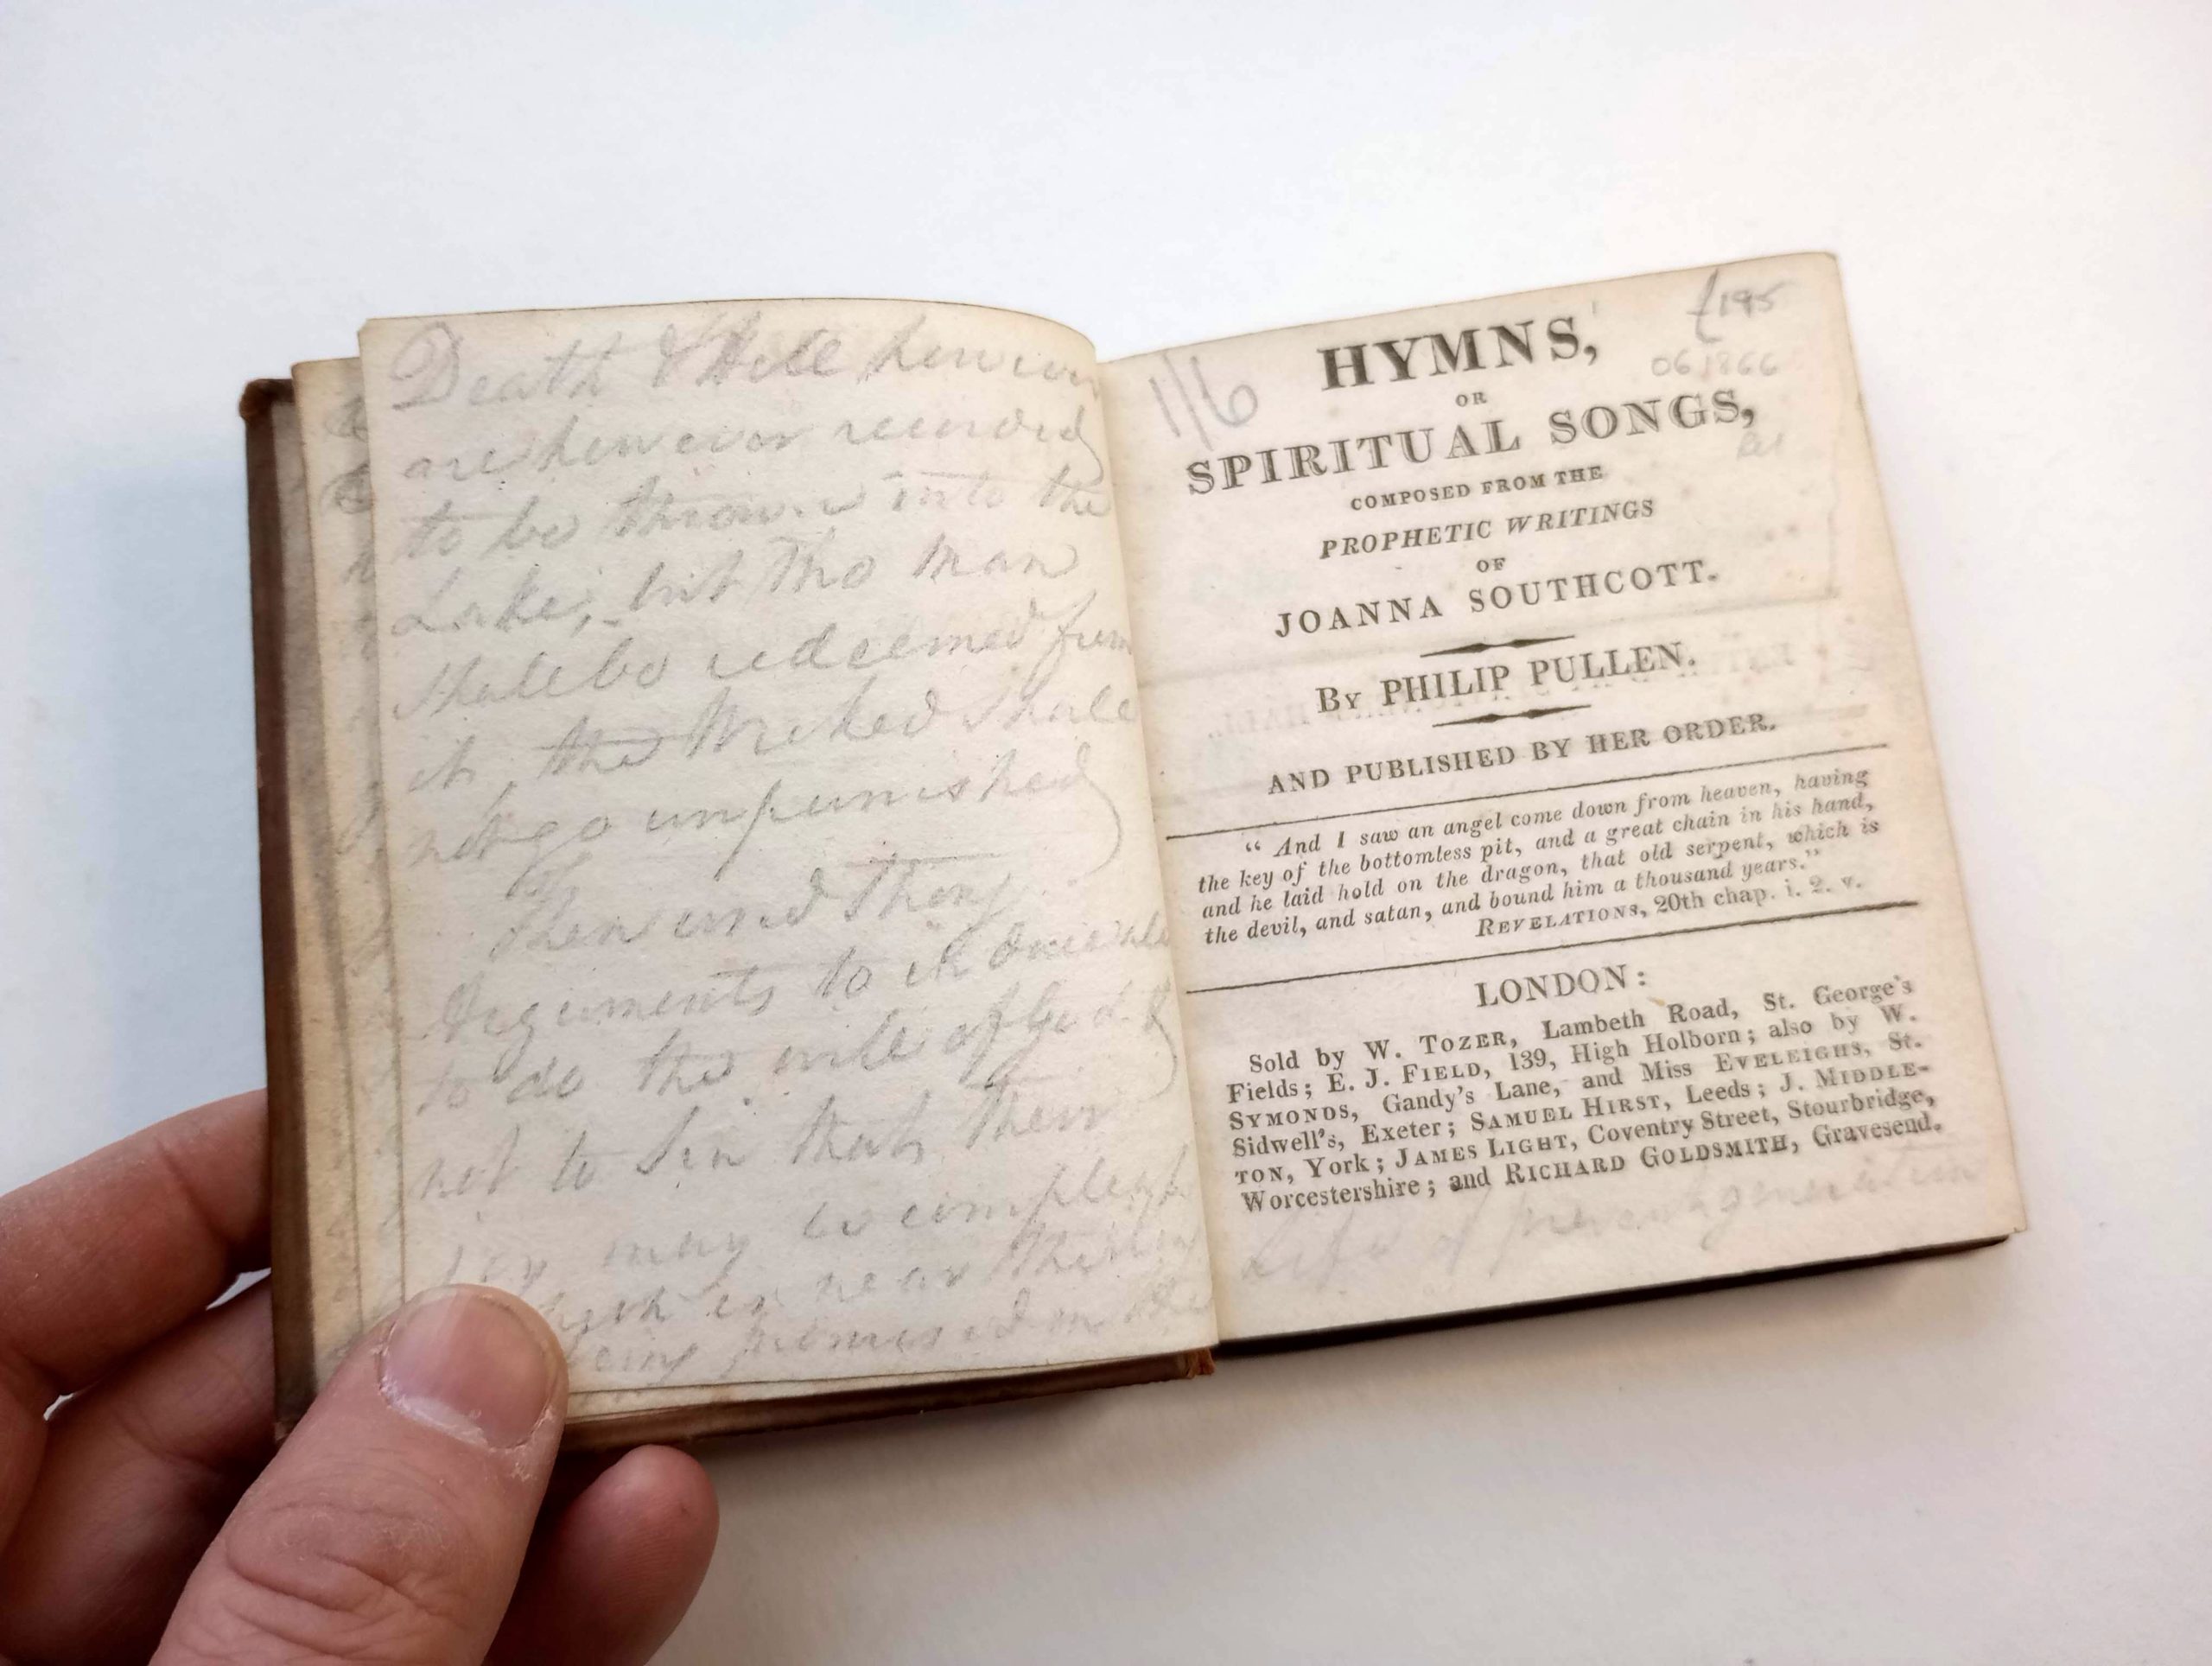 Death & Hell however
are however recorded
to be thrown into the
Lake, but tho man
shall be redeemed from
it, the Wicked shall
not go unpunished
arguments to it
to do the will of God &
not to sin that their
joy may be
near
being promised on the
£195
1/6
HYMNS,
061866
OR
SPIRITUAL SONGS,
COMPOSED FROM THE
PROPHETIC WRITINGS
OF
JOANNA SOUTHCOTT.
By PHILIP PULLEN.
AND PUBLISHED BY HER ORDER.
“ And I saw an angel come down from heaven, having
the key of the bottomless pit, and a great chain in his hand,
and he laid hold on the dragon, that old serpent, which is
the devil, and satan, and bound him a thousand years.”
REVELATIONS, 20th chap. i. 2. v.
LONDON:
Sold by W. TOZER, Lambeth Road, St. George's
Fields; E. J. FIELD, 139, High Holborn; also by W.
SYMONDS, Gandy's Lane, and Miss EVELEIGHS, St.
Sidwell's, Exeter; SAMUEL HIRST, Leeds; J. MIDDLE-
TON, York; JAMES LIGHT, Coventry Street, Stourbridge,
Worcestershire; and RICHARD GOLDSMITH, Gravesend.
Life of